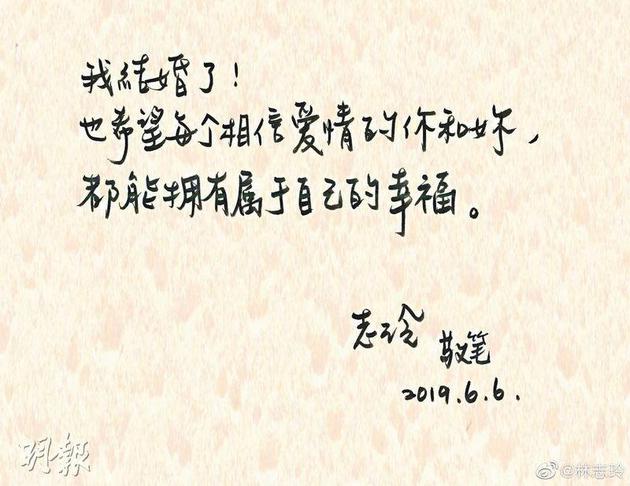 我結婚了！
也希望每个相信爱情的你和妳，
都能拥有属于自己的幸福。
志玲 敬笔
2019.6.6.
明報
@林志玲